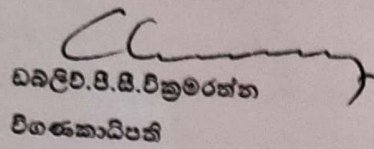 ඩබලිව්.පී.සී.වික්‍රමරත්න
විගණකාධිපති